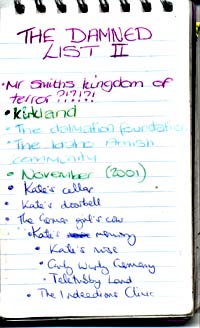 THE DAMNED
LIST II
• Mr Smiths kingdom of
terror ?!?!?!
• Kirkland
• The dalmation foundation
• The Idaho Amish
community
• November (2001)
• Kate's cellar
• Kate's doorbell
• The German girl's cow
• Kate's memory
• Kate's nose
• Curly Wurly Germany
• Teletubby Land
• The Indeedions Clinic